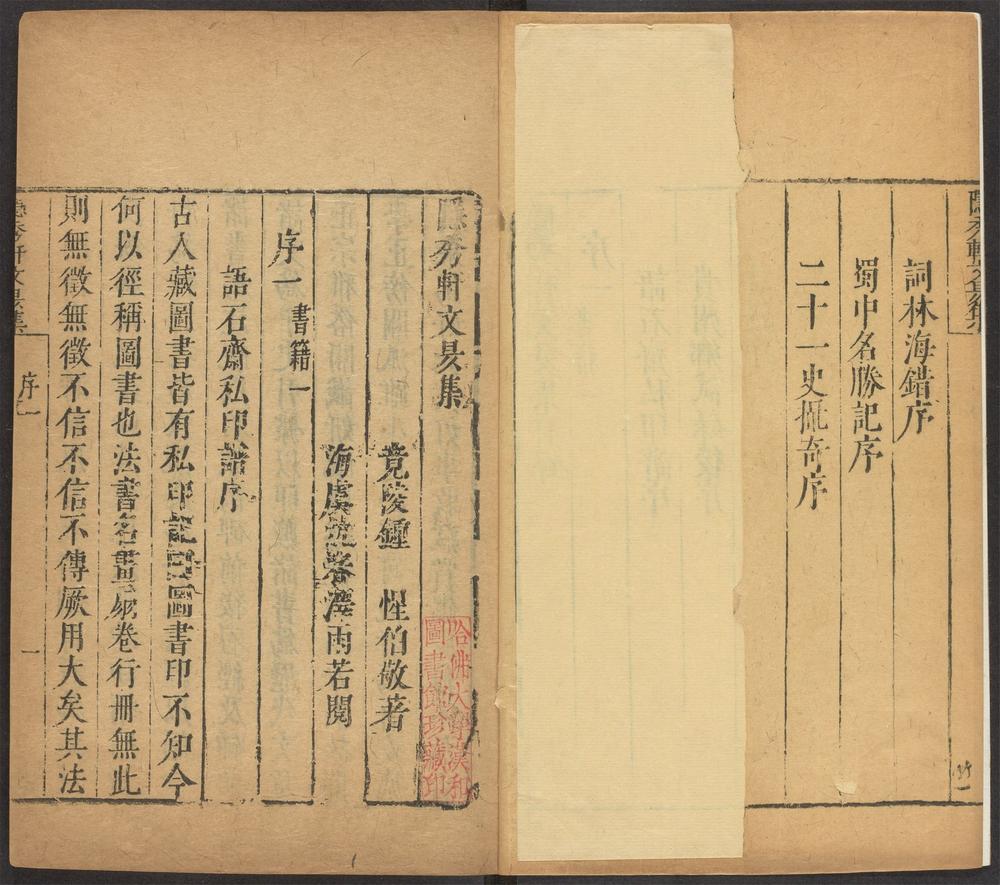 詞林海錯序
蜀中名勝記序
二十一史摭奇序
隱秀軒文昃集
竟陵鍾　惺伯敬著
海虞 春漢雨若閱
序一　書籍一
語石齋私印譜序
古人藏圖書皆有私印記曰圖書印不知今
何以徑稱圖書也法書名畫縹卷行冊無此
則無徵無徵不信不信不傳厥用大矣其法
序一
一
哈佛大學漢和
圖書館珍藏印